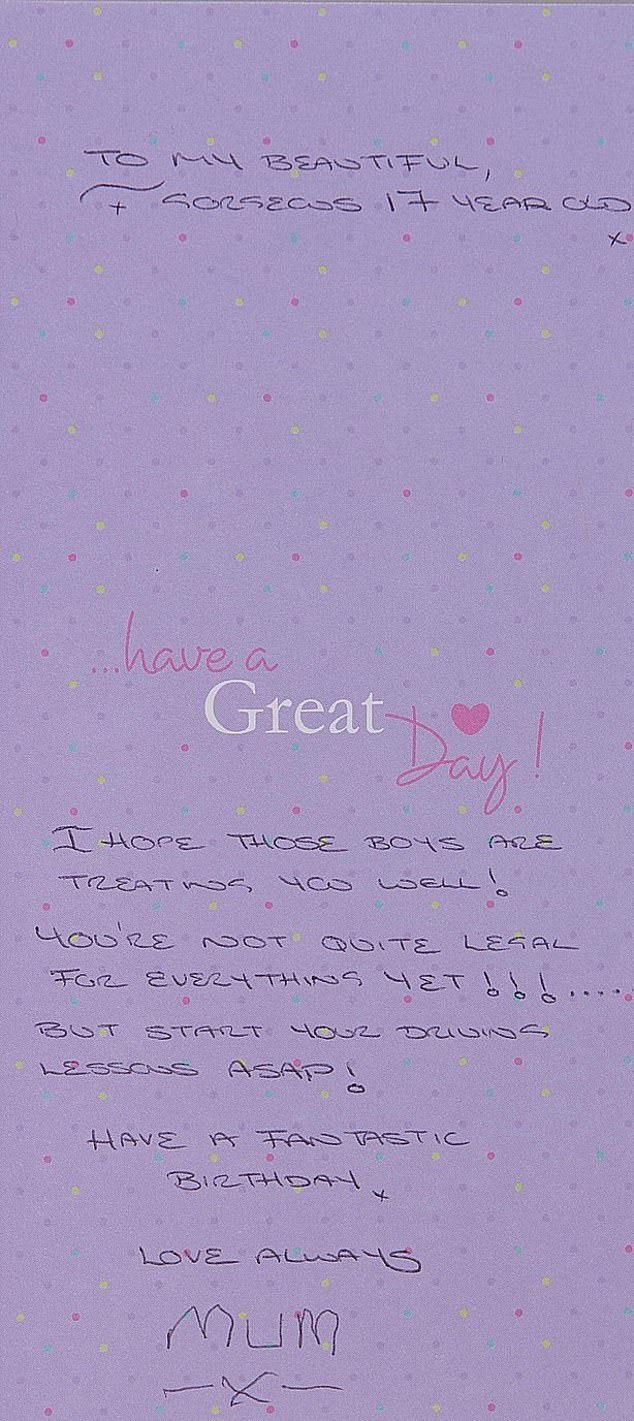 TO MY BEAUTIFUL,
+ GORGEOUS 17 YEAR OLD
x
...have a
Great
Day!
I HOPE THOSE BOYS ARE
TREATING YOU WELL!
YOU'RE NOT QUITE LEGAL
FOR EVERYTHING YET!!!.....
BUT START YOUR DRIVING
LESSONS ASAP!
HAVE A FANTASTIC
BIRTHDAY x
LOVE ALWAYS
MUM
—X—